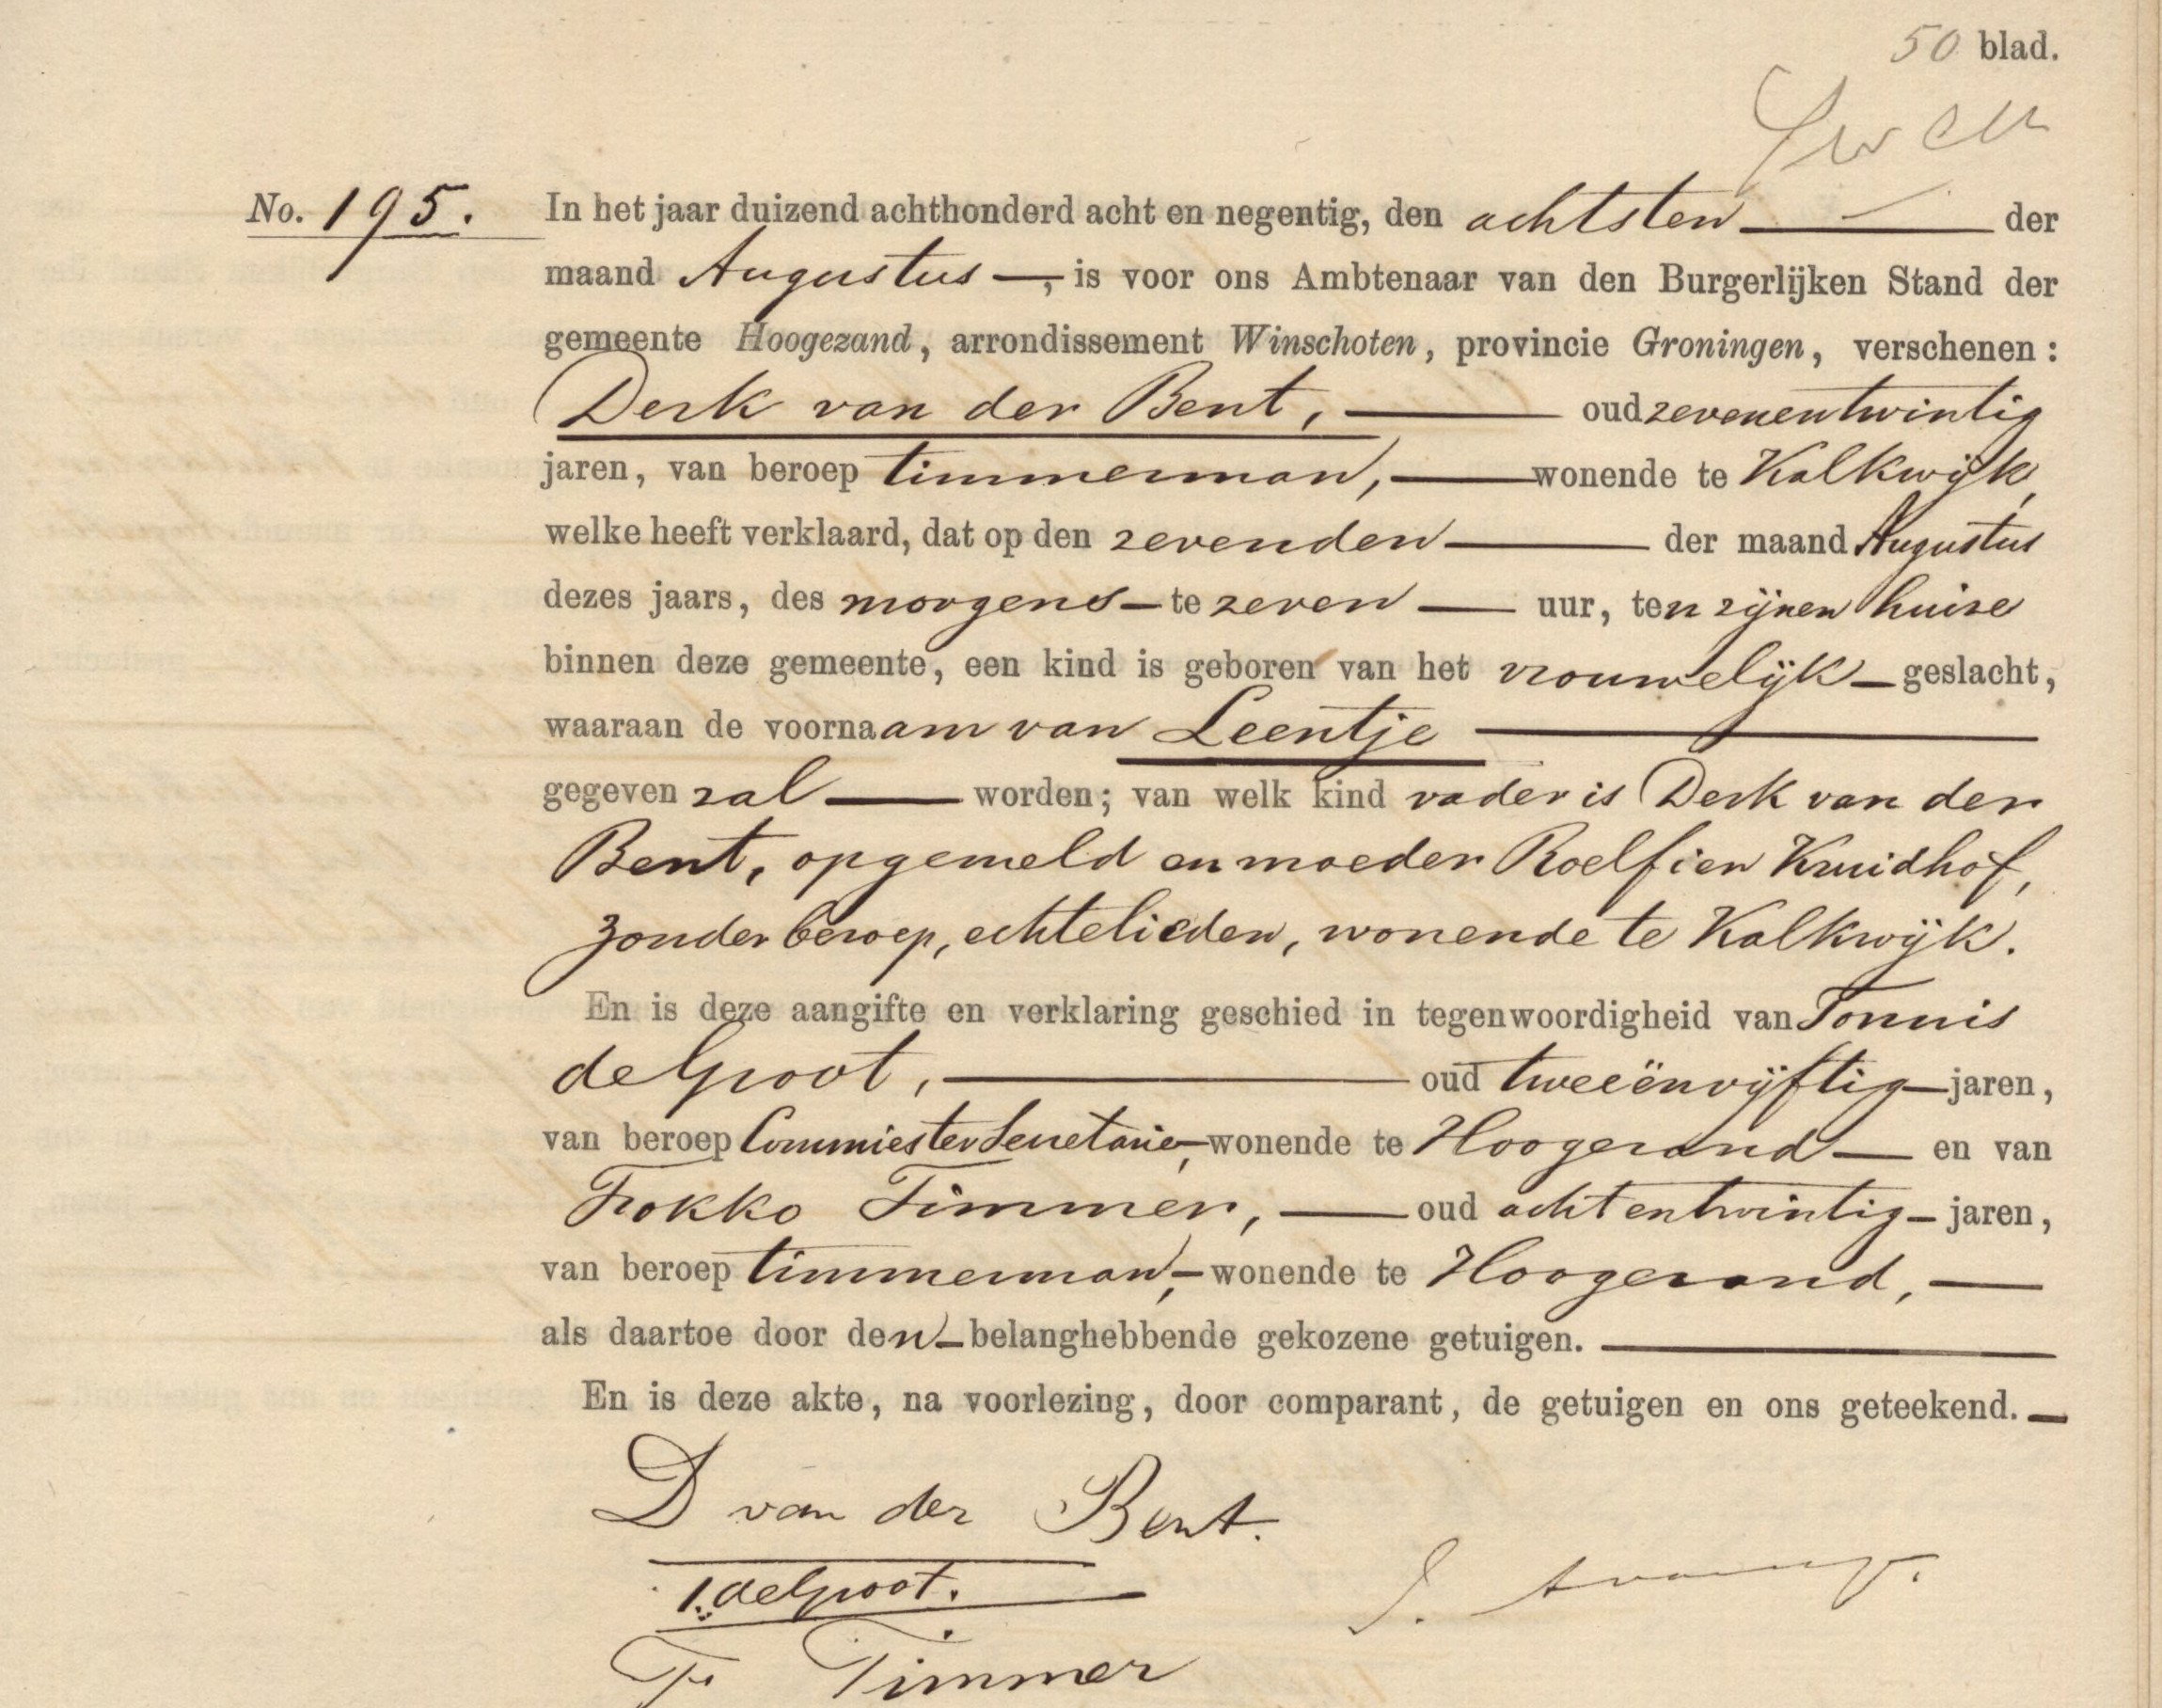 50 blad.
No. 195. In het jaar duizend achthonderd acht en negentig, den achtsten der
maand Augustus —, is voor ons Ambtenaar van den Burgerlijken Stand der
gemeente Hoogezand, arrondissement Winschoten, provincie Groningen, verschenen:
Derk van der Bent, — oud zevenentwintig
jaren, van beroep timmerman, — wonende te Kalkwijk,
welke heeft verklaard, dat op den zevenden — der maand Augustus
dezes jaars, des morgens — te zeven — uur, ten zijnen huize
binnen deze gemeente, een kind is geboren van het vrouwelijk — geslacht,
waaraan de voornaam van Leentje —
gegeven zal — worden; van welk kind vader is Derk van der
Bent, opgemeld en moeder Roelfien Kruidhof,
zonder beroep, echtelieden, wonende te Kalkwijk.
En is deze aangifte en verklaring geschied in tegenwoordigheid van Tonnis
de Groot, — oud tweeënvijftig — jaren,
van beroep Commies ter Secretarie, — wonende te Hoogezand — en van
Fokko Timmer, — oud achtentwintig — jaren,
van beroep timmerman, — wonende te Hoogezand, —
als daartoe door den — belanghebbende gekozene getuigen. —
En is deze akte, na voorlezing, door comparant, de getuigen en ons geteekend. —
D van der Bent.
T. de Groot.
F Timmer